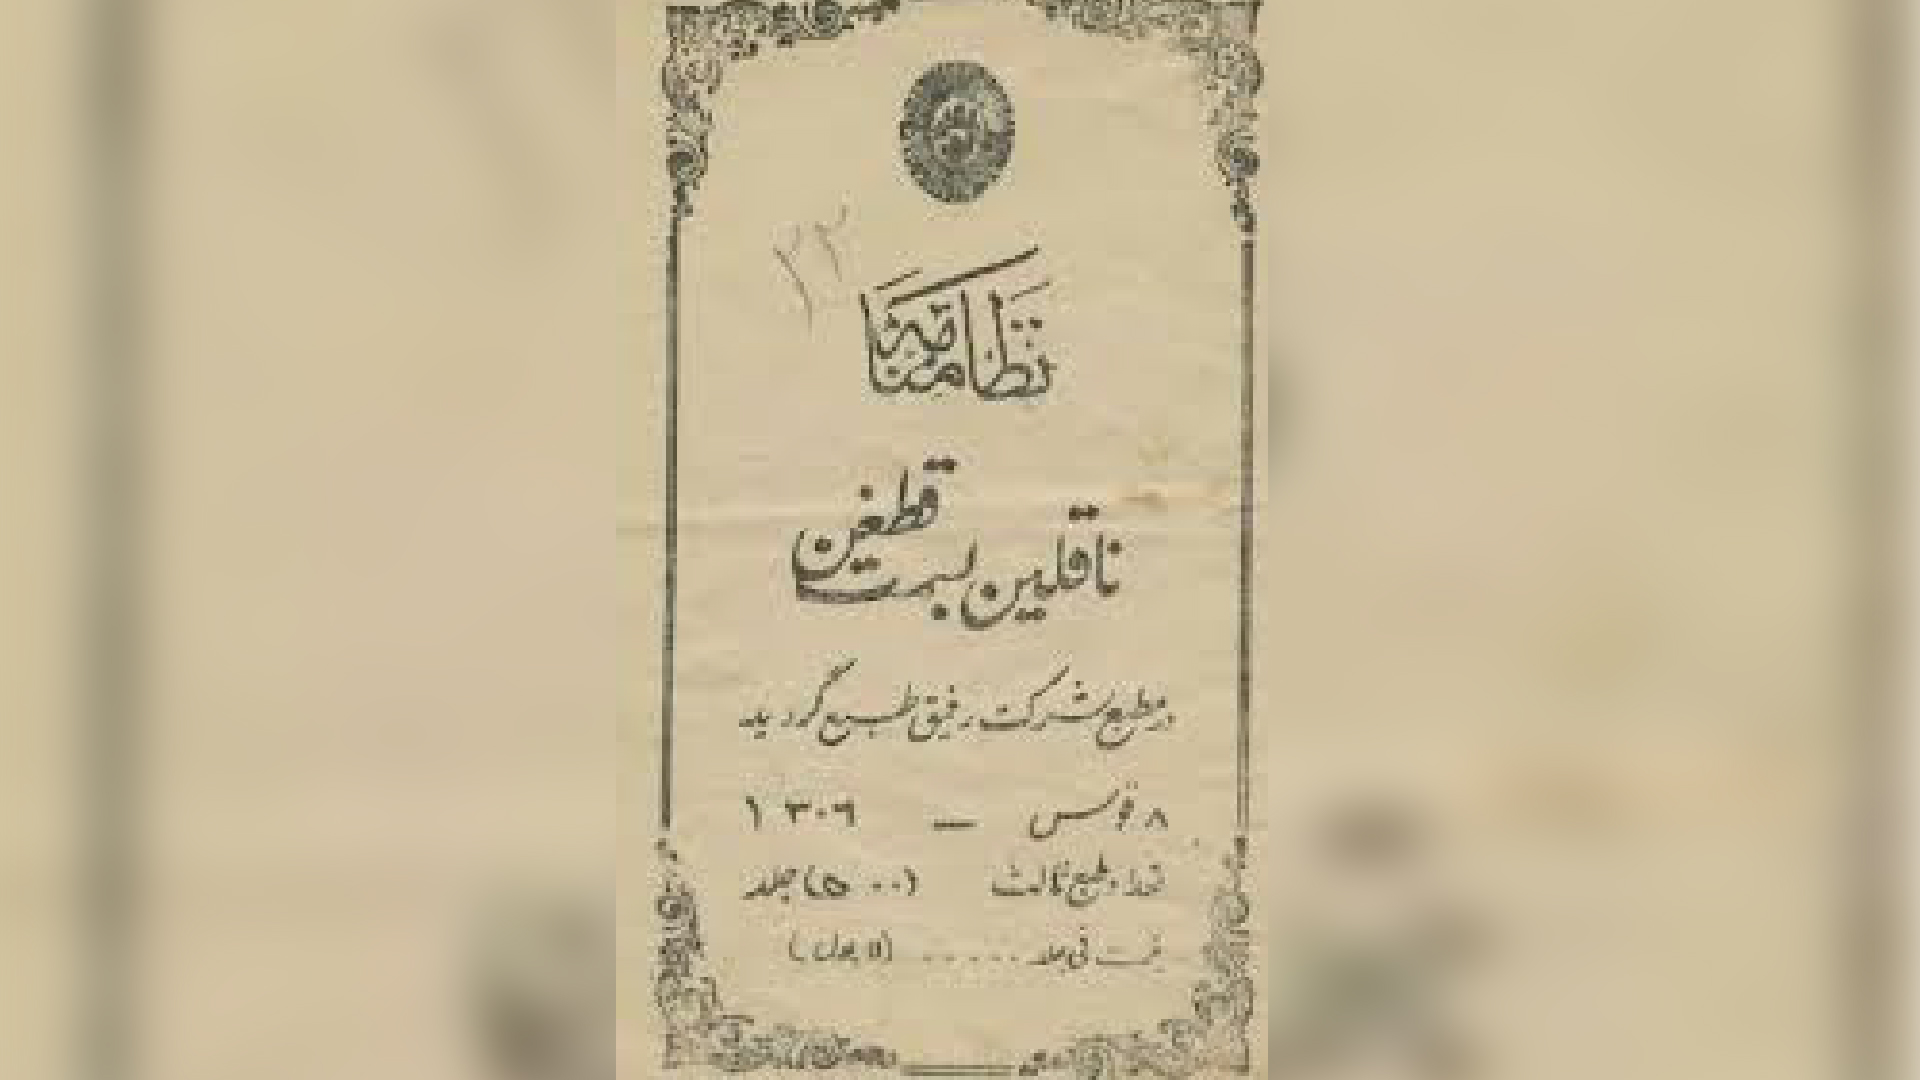 ۲۳
نظامنامه
ناقلین بسمت قطغن
در مطبع شرکت رفیق طبع گردید
۸ قوس — ۱۳۰۶
تعداد طبع ثالث (۵۰۰) جلد
قیمت فی جلد ..... (۱۱ پول)